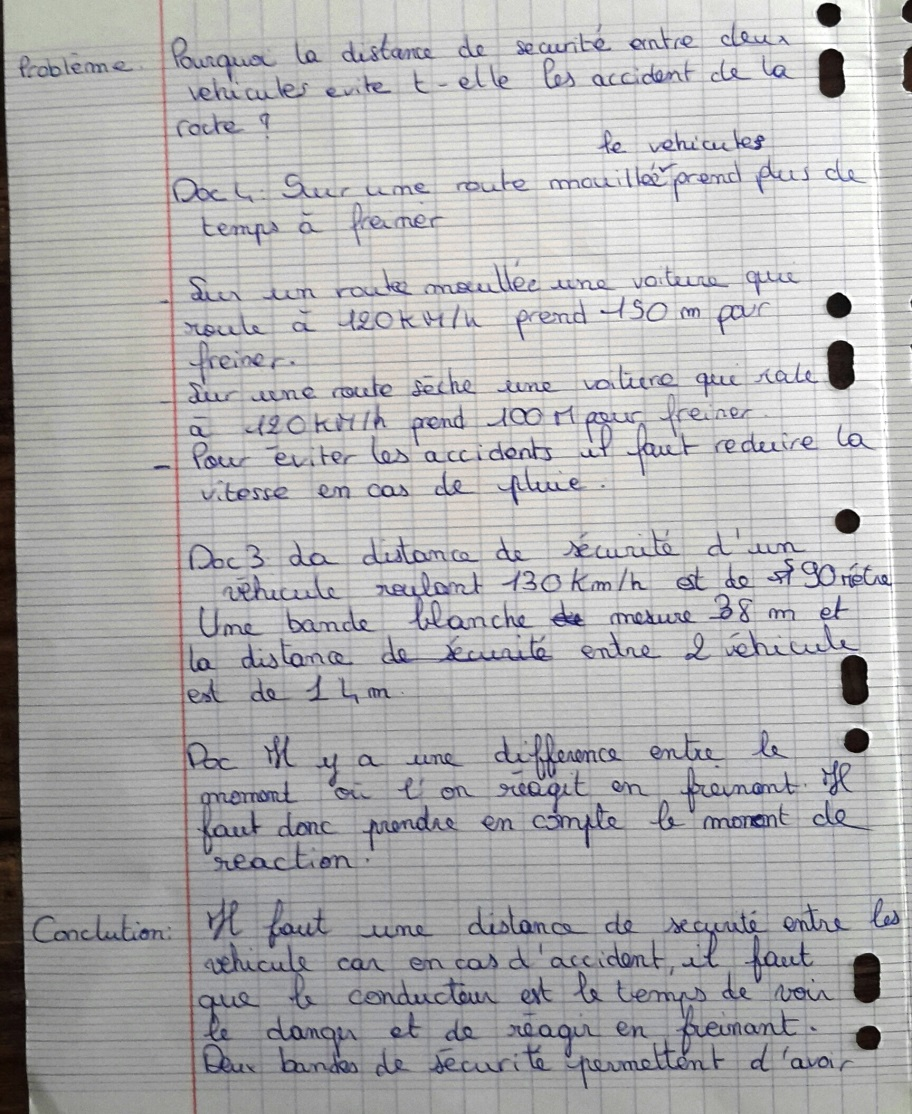 Problème. Pourquoi la distance de securité entre deux
vehicules evite t-elle les accident de la
route ?
le vehicules
Doc 4. Sur une route mouillée prend plus de
temps à freiner
- Sur un route moullée une voiture que
roule à 120KM/h prend 150 m pour
freiner.
- Sur une route sèche une voiture que role
à 120KM/h prend 100M pour freiner.
- Pour éviter les accidents il faut reduire la
vitesse en cas de pluie.
Doc 3. La distance de sécurité d'un
véhicule roulant 130 km/h est de 90 mètre
Une bande blanche mesure 38 m et
la distance de sécurité entre 2 véhicule
est de 14 m.
Doc Il y a une difference entre le
moment où l'on réagit en freinant. Il
faut donc prendre en compte le moment de
reaction.
Conclution: Il faut une distance de securité entre les
vehicule car en cas d'accident, il faut
que le conducteur est le temps de voir
le danger et de réagir en freinant.
Deux bandes de sécurité permettent d'avoir